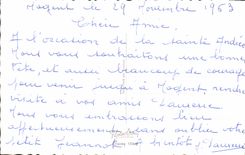 Nogent le 29 Novembre 1953
Chère Amie,
A l'occasion de la sainte Andrée
Nous vous souhaitons une bonne
fête, et aussi beaucoup de courage
pour venir à Nogent, rendre
visite à vos amis Laurence
Nous vous embrassons bien
affectueusement, sans oublier votre
petite Jeannot.